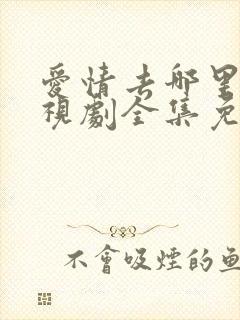 愛情去哪里
視劇全集免
不會吸煙的魚